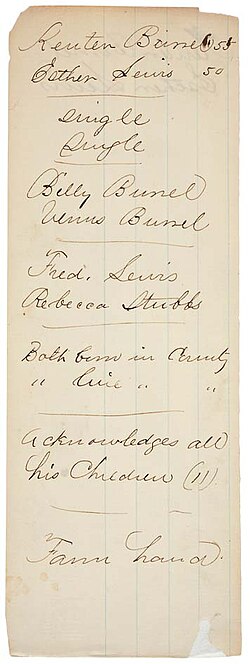 Reuten Burrel 55
Esther Lewis 50
Single
Single
Billy Burrel
Venus Burrel
Fred. Lewis
Rebecca Stubbs
Both born in County
" live " "
Acknowledges all
his Children (11)
Farm hand.